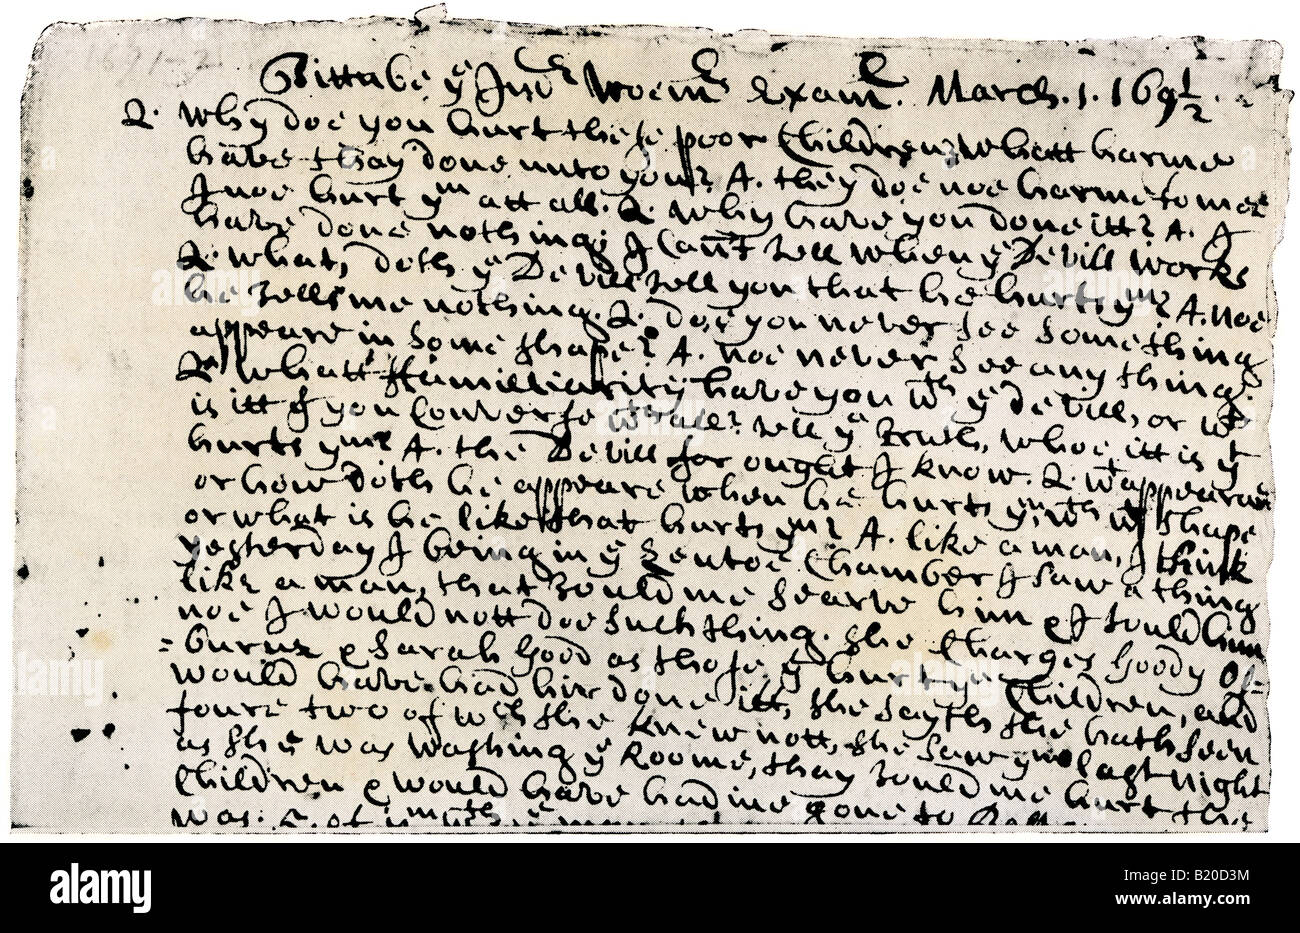 1691-2
Tittube yͤ Indⁿ Woemⁿˢ Examⁿ. March. 1. 169½
Q. why doe you hurt these poor Children? whatt harme
have thay done unto you? A. they doe noe harme to mee
I noe hurt yᵐ att all. Q. why have you done itt? A. I
have done nothing; I Can't tell when yͤ Devill works
Q. what, doth yͤ Devill tell you that he hurts yᵐ? A. noe
he tells me nothing. Q. doe you never see Something
appeare in Some shape? A. noe never See any thing.
Q. whatt familiarity have you wᵗʰ yͤ devill, or wᵗ
is itt if you Converse wᵗʰ all? tell yͤ truth, whoe itt is yᵗ
hurts yᵐ? A. the Devill for ought I know. Q. wᵗ appearanc
or how doth he appeare when he hurts yᵐ, wᵗʰ wᵗ shape
or what is he like that hurts yᵐ? A. like a man, I think
yesterday I being in yͤ Lentoe Chamber I saw a thing
like a man, that tould me Searve him & I tould him
noe I would nott doe Such thing. she charges Goody Os=
=burne & Sarah Good as those yᵗ hurt yͤ Children, and
would have had hir done itt, she sayth she hath Seen
foure two of wᶜʰ she knew nott, she saw yᵐ last night
as she was washing yͤ Roome, thay tould me hurt the
Children & would have had me gone to
was.
alamy
Image ID: B20D3M
www.alamy.com